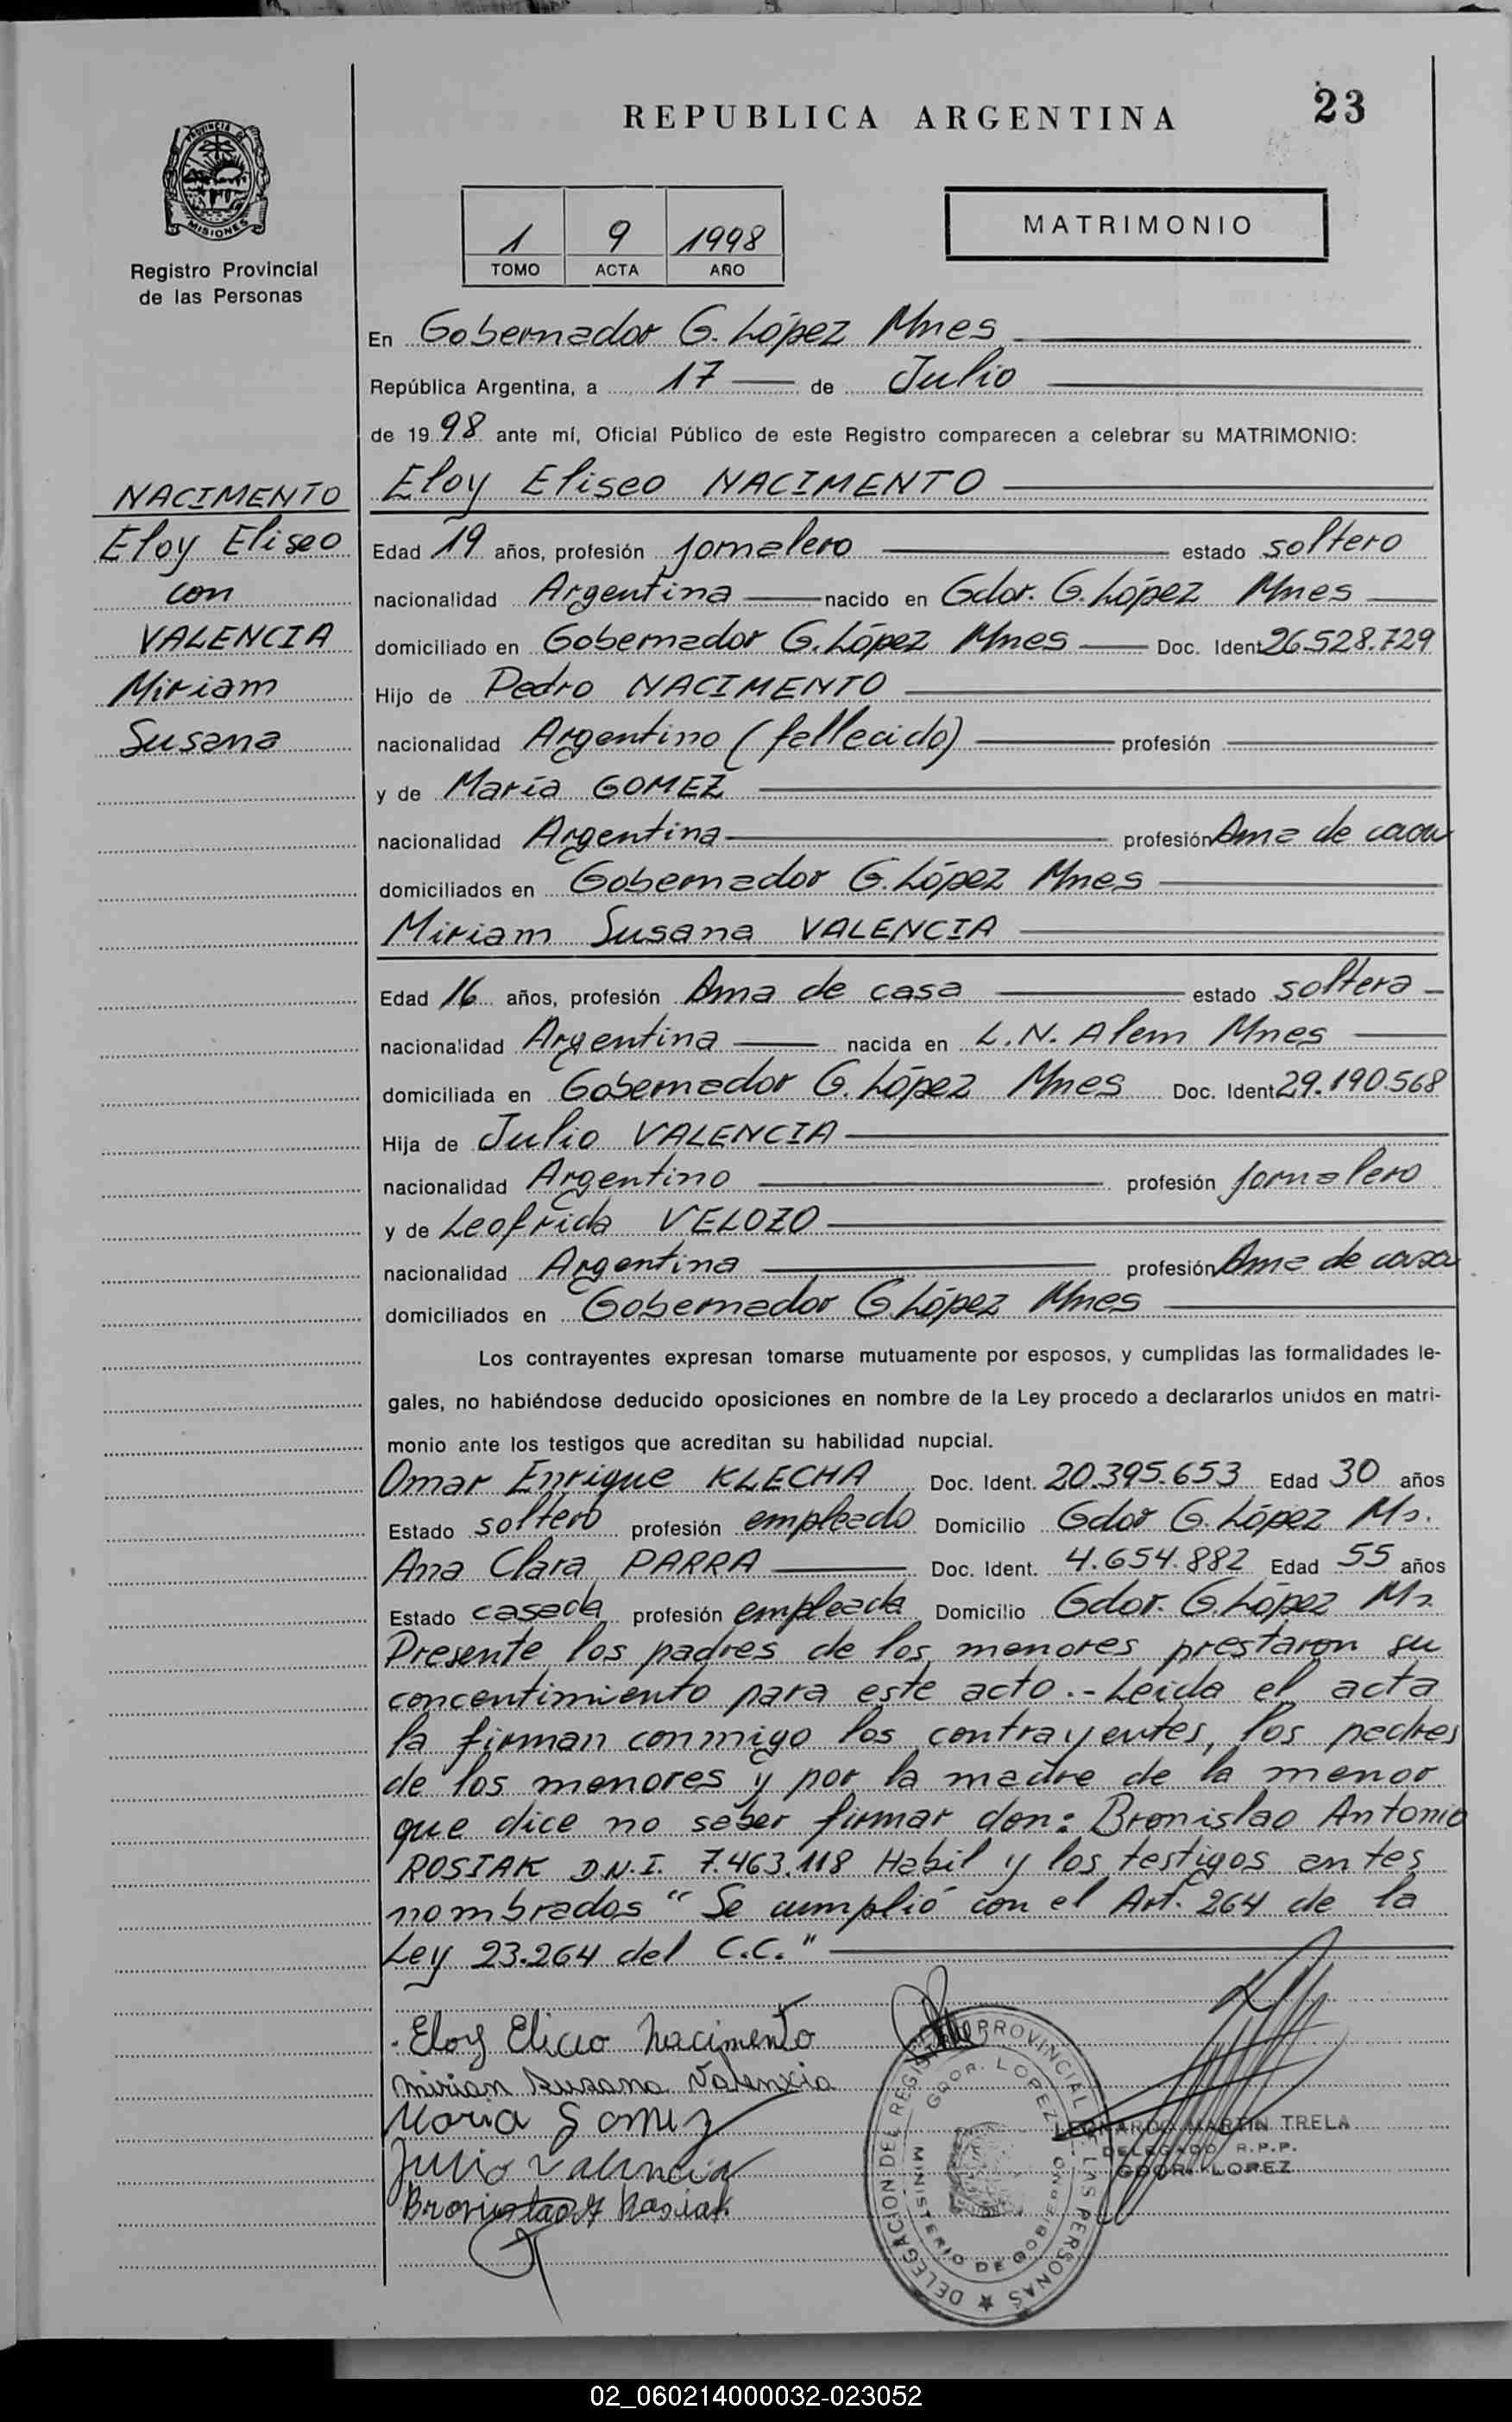 23
REPUBLICA ARGENTINA
PROVINCIA DE
MISIONES
Registro Provincial
de las Personas
1 9 1998
TOMO ACTA AÑO
MATRIMONIO
En Gobernador G. López Mnes
República Argentina, a 17 de Julio
de 1998 ante mí, Oficial Público de este Registro comparecen a celebrar su MATRIMONIO:
NACIMENTO
Eloy Eliseo
con
VALENCIA
Miriam
Susana
Eloy Eliseo NACIMENTO
Edad 19 años, profesión jornalero estado soltero
nacionalidad Argentina nacido en Gdor. G. López Mnes
domiciliado en Gobernador G. López Mnes Doc. Ident 26.528.729
Hijo de Pedro NACIMENTO
nacionalidad Argentino (fallecido) profesión
y de María GOMEZ
nacionalidad Argentina profesión Ama de casa
domiciliados en Gobernador G. López Mnes
Miriam Susana VALENCIA
Edad 16 años, profesión Ama de casa estado soltera
nacionalidad Argentina nacida en L.N. Alem Mnes
domiciliada en Gobernador G. López Mnes Doc. Ident 29.190.568
Hija de Julio VALENCIA
nacionalidad Argentino profesión jornalero
y de Leofrida VELOZO
nacionalidad Argentina profesión Ama de casa
domiciliados en Gobernador G. López Mnes
Los contrayentes expresan tomarse mutuamente por esposos, y cumplidas las formalidades le-
gales, no habiéndose deducido oposiciones en nombre de la Ley procedo a declararlos unidos en matri-
monio ante los testigos que acreditan su habilidad nupcial.
Omar Enrique KLECHA Doc. Ident. 20.395.653 Edad 30 años
Estado soltero profesión empleado Domicilio Gdor G. López Ms.
Ana Clara PARRA Doc. Ident. 4.654.882 Edad 55 años
Estado casada profesión empleada Domicilio Gdor. G. López Ms.
Presente los padres de los menores prestaron su
concentimiento para este acto.- Leída el acta
la firman conmigo los contrayentes, los padres
de los menores y por la madre de la menor
que dice no saber firmar don: Bronislao Antonio
ROSIAK D.N.I. 7.463.118 Habil y los testigos antes
nombrados " Se cumplió con el Art. 264 de la
Ley 23.264 del C.C."
Eloy Elicio Nacimento
Mirian Susana Valenxia
Maria Gomez
Julio Valencia
Bronislao A Rosiak
DELEGACION DEL REGISTRO PROVINCIAL DE LAS PERSONAS
GDOR. LOPEZ
MINISTERIO DE GOBIERNO
LEONARDO MARTIN TRELA
DELEGADO R.P.P.
GDOR. LOPEZ
02_060214000032-023052